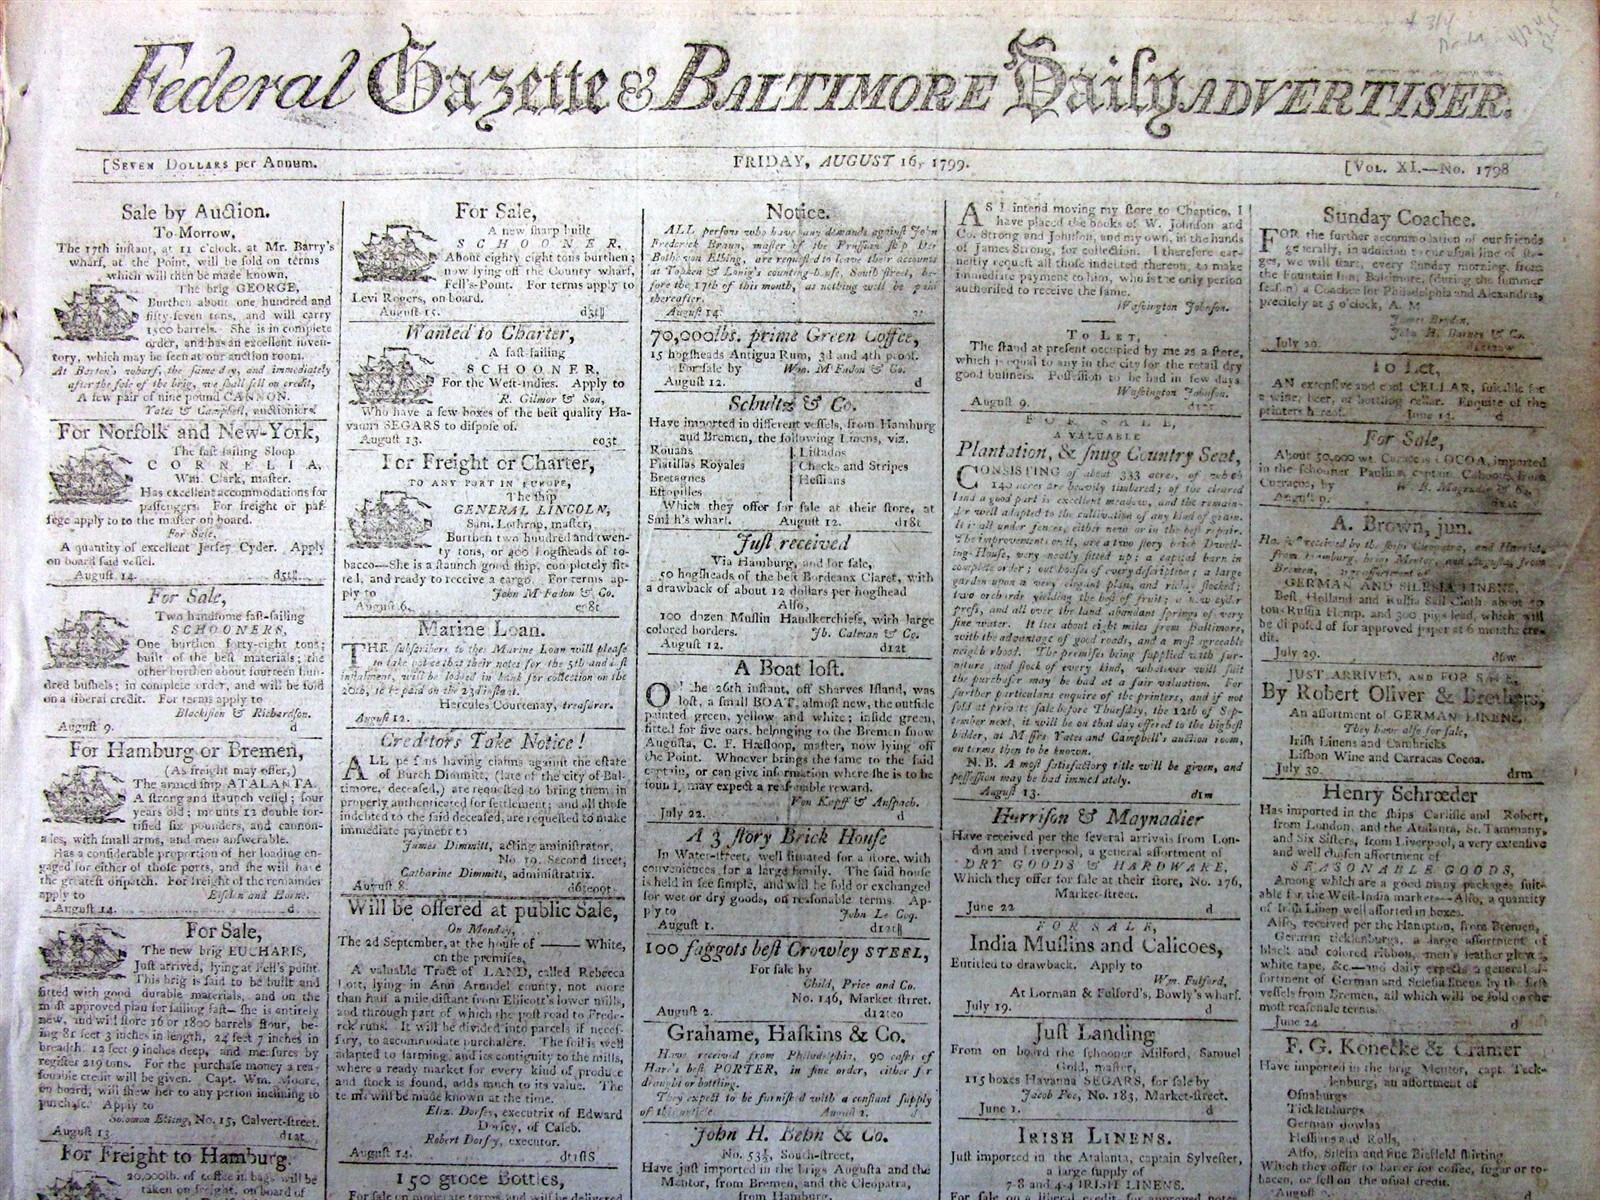 Federal Gazette & BALTIMORE Daily ADVERTISER.
[SEVEN DOLLARS per Annum.
FRIDAY, AUGUST 16, 1799.
[VOL. XI.—No. 1798
Sale by Auction.
To-Morrow,
The 17th instant, at 11 o'clock, at Mr. Barry's
wharf, at the Point, will be sold on terms
which will then be made known,
The brig GEORGE,
Burthen about one hundred and
fifty-seven tons, and will carry
1500 barrels. She is in complete
order, and has an excellent inven-
tory, which may be seen at our auction room.
At Barton's wharf, the same day, and immediately
after the sale of the brig, we shall sell on credit,
A few pair of nine pound CANNON.
Yates & Campbell, auctioniers
For Norfolk and New-York,
The fast sailing Sloop
CORNELIA,
Wm. Clark, master.
Has excellent accommodations for
passengers. For freight or pas-
sage apply to to the master on board.
For Sale,
A quantity of excellent Jersey Cyder. Apply
on board said vessel.
August 14.
For Sale,
Two handsome fast-sailing
SCHOONERS,
One burthen forty-eight tons;
built of the best materials; the
other burthen about fourteen hun-
dred bushels; in complete order, and will be sold
on a liberal credit. For terms apply to
Blackiston & Richardson.
August 9. d
For Hamburg or Bremen,
(As freight may offer,)
The armed ship ATALANTA.
A strong and staunch vessel; four
years old; mounts 12 double for-
tified six pounders, and cannon-
ades, with small arms, and men answerable.
Has a considerable proportion of her loading en-
gaged for either of those ports, and she will have
the greatest dispatch. For freight of the remainder
apply to
August 14. d
For Sale,
The new brig EUCHARIS,
Just arrived, lying at Fell's point.
This brig is said to be built and
fitted with good durable materials, and on the
most approved plan for sailing fast—she is entirely
new, and will store 16 or 1800 barrels flour, be-
ing 81 feet 3 inches in length, 24 feet 7 inches in
breadth, 12 feet 9 inches deep, and mesures by
register 219 tons. For the purchase money a rea-
sonable credit will be given. Capt. Wm. Moore,
on board, will shew her to any person inclining to
purchase. Apply to
Solomon Etting, No. 15, Calvert-street.
August 13 d12t
For Freight to Hamburg.
20,000lb. of coffee in bags will be
taken on freight, on board of
For Sale,
A new sharp built
SCHOONER,
About eighty eight tons burthen;
now lying off the County wharf,
Fell's-Point. For terms apply to
Levi Rogers, on board.
August 15.
Wanted to Charter,
A fast-sailing
SCHOONER,
For the West-Indies. Apply to
R. Gilmor & Son,
Who have a few boxes of the best quality Ha-
vanna SEGARS to dispose of.
August 13. eo3t
For Freight or Charter,
TO ANY PORT IN EUROPE,
The ship
GENERAL LINCOLN,
Sam. Lothrop, master,
Burthen two hundred and twen-
ty tons, or 400 hogsheads of to-
bacco—She is a staunch good ship, completely fit-
ted, and ready to receive a cargo. For terms ap-
ply to John M'Fadon & Co.
August 6. eo8t
Marine Loan.
THE subscribers to the Marine Loan will please
to take notice that their notes for the 5th and last
instalment, will be lodged in bank for collection on the
20th, to be paid on the 23d instant.
Hercules Courtenay, treasurer.
August 12.
Creditors Take Notice!
ALL persons having claims against the estate
of Burch Dimmitt, (late of the city of Bal-
timore, deceased,) are requested to bring them in
properly authenticated for settlement; and all those
indebted to the said deceased, are requested to make
immediate payment to
James Dimmitt, acting aministrator,
No. 19, Second street,
Catharine Dimmitt, administratrix.
August 8.
Will be offered at public Sale,
On Monday,
The 2d September, at the house of —— White,
on the premises,
A valuable Tract of LAND, called Rebecca
Lott, lying in Ann Arundel county, not more
than half a mile distant from Ellicott's lower mills,
and through part of which the post road to Frede-
rick runs. It will be divided into parcels if neces-
sary, to accommodate purchasers. The soil is well
adapted to farming, and its contiguity to the mills,
where a ready market for every kind of produce
and stock is found, adds much to its value. The
terms will be made known at the time.
Eliz. Dorsey, executrix of Edward
Dorsey, of Caleb.
Robert Dorsey, executor.
August 14.
150 groce Bottles,
For sale on moderate terms and will be delivered
Notice.
ALL persons who have any demands against John
Frederick Braun, master of the Prussian ship
Bothe von Elbing, are requested to leave their accounts
at Topken & Lanig's counting-house, South street, be-
fore the 17th of this month, as nothing will be paid
thereafter.
August 14
70,000lbs. prime Green Coffee,
15 hogsheads Antigua Rum, 3d and 4th proof.
For sale by Wm. M'Fadon & Co.
August 12. d
Schultz & Co.
Have imported in different vessels, from Hamburg
and Bremen, the following Linens, viz.
Rouans Listados
Platillas Royales Checks and Stripes
Bretagnes Hessians
Estopilles
Which they offer for sale at their store, at
Smith's wharf. August 12. d18t
Just received
Via Hamburg, and for sale,
50 hogsheads of the best Bordeaux Claret, with
a drawback of about 12 dollars per hogshead
Also,
100 dozen Muslin Handkerchiefs, with large
colored borders. Jb. Calman & Co.
August 12. d12t
A Boat lost.
ON the 26th instant, off Sharves Island, was
lost, a small BOAT, almost new, the outside
painted green, yellow and white; inside green,
fitted for five oars, belonging to the Bremen snow
Augusta, C. F. Hæsloop, master, now lying off
the Point. Whoever brings the same to the said
captain, or can give information where she is to be
found, may expect a reasonable reward.
Von Kapff & Anspach.
July 22. d
A 3 story Brick House
In Water-street, well situated for a store, with
conveniences for a large family. The said house
is held in fee simple, and will be sold or exchanged
for wet or dry goods, on reasonable terms. Ap-
ply to John Le Coq.
August 1.
100 faggots best Crowley STEEL,
For sale by
Child, Price and Co.
No. 146, Market street.
August 2. d12teo
Grahame, Haskins & Co.
Have received from Philadelphia, 90 casks of
Hare's best PORTER, in fine order, either for
draught or bottling.
They expect to be furnished with a constant supply
of this article. August 2. d
John H. Behn & Co.
No. 53½, South-street,
Have just imported in the brigs Augusta and the
Mentor, from Bremen, and the Cleopatra,
from Hamburg.
AS I intend moving my store to Chaptico, I
have placed the books of W. Johnson and
Co. Strong and Johnson, and my own, in the hands
of James Strong, for collection. I therefore ear-
nestly request all those indebted thereon, to make
immediate payment to him, who is the only person
authorised to receive the same.
Washington Johnson.
TO LET,
The stand at present occupied by me as a store,
which is equal to any in the city for the retail dry
good business. Possession to be had in few days
Washington Johnson.
August 9.
FOR SALE,
A VALUABLE
Plantation, & snug Country Seat,
CONSISTING of about 333 acres, of which
140 acres are heavily timbered; of the cleared
land a good part is excellent meadow, and the remain-
der well adapted to the cultivation of any kind of grain.
It is all under fences, either new or in the best repair.
The improvements on it, are a two story brick Dwell-
ing-House, very neatly fitted up; a capital barn in
complete order; out houses of every description; a large
garden upon a very elegant plan, and richly stocked;
two orchards yielding the best of fruit; a new cyder
press, and all over the land abundant springs of very
fine water. It lies about eight miles from Baltimore,
with the advantage of good roads, and a most agreeable
neighborhood. The premises being supplied with fur-
niture and stock of every kind, whatever will suit
the purchaser may be had at a fair valuation. For
further particulars enquire of the printers, and if not
sold at private sale before Thursday, the 12th of Sep-
tember next, it will be on that day offered to the highest
bidder, at Messrs Yates and Campbell's auction room,
on terms then to be known.
N. B. A most satisfactory title will be given, and
possession may be had immediately.
August 13. d1m
Harrison & Maynadier
Have received per the several arrivals from Lon-
don and Liverpool, a general assortment of
DRY GOODS & HARDWARE,
Which they offer for sale at their store, No. 176,
Market-street.
June 22 d
FOR SALE,
India Muslins and Calicoes,
Entitled to drawback. Apply to
Wm. Fulford,
At Lorman & Fulford's, Bowly's wharf.
July 19. d
Just Landing
From on board the schooner Milford, Samuel
Gold, master,
115 boxes Havanna SEGARS, for sale by
Jacob Poe, No. 183, Market-street.
June 1. d
IRISH LINENS.
Just imported in the Atalanta, captain Sylvester,
a large supply of
7-8 and 4-4 IRISH LINENS.
For sale on a liberal credit, for approved notes
Sunday Coachee.
FOR the further accommodation of our friends
generally, in addition to our usual line of sta-
ges, we will start, every Sunday morning, from
the Fountain Inn, Baltimore, (during the summer
season) a Coachee for Philadelphia and Alexandria,
precisely at 5 o'clock, A. M.
James Bryden,
John H. Barney & Co.
July 20.
To Let,
AN extensive and cool CELLAR, suitable for
a wine, beer, or bottling cellar. Enquire of the
printers hereof. June 14. d
For Sale,
About 30,000 wt. Curacoa COCOA, imported
in the schooner Paulina, captain from
Curracoa, by
August 9.
A. Brown, jun.
Has received by the ships Cleopatra, and Harriet,
from Hamburg, brigs Mentor, and Augusta, from
Bremen,
GERMAN AND SILESIA LINENS,
Best, Holland and Russia Sail Cloth, about 50
tons Russia Hemp, and 300 pigs lead, which will
be disposed of for approved paper at 6 months cre-
dit.
July 29. d6w
JUST ARRIVED, AND FOR SALE,
By Robert Oliver & Brothers,
An assortment of GERMAN LINENS,
They have also for sale,
Irish Linens and Cambricks
Lisbon Wine and Carracas Cocoa.
July 30. d1m
Henry Schrœder
Has imported in the ships Carlisle and Robert,
from London, and the Atalanta, St. Tammany,
and Six Sisters, from Liverpool, a very extensive
and well chosen assortment of
SEASONABLE GOODS,
Among which are a good many packages suit-
able for the West-India markets—Also, a quantity
of Irish Linen well assorted in boxes.
Also, received per the Hampton, from Bremen,
German ticklenburgs, a large assortment of
black and colored ribbon, men's leather gloves,
white tape, &c.—and daily expects a general as-
sortment of German and Selesia linens by the first
vessels from Bremen, all which will be sold on the
most reasonable terms.
June 24 d
F. G. Konecke & Cramer
Have imported in the brig Mentor, capt. Teck-
lenburg, an assortment of
Osnaburgs
Ticklenburgs
German dowlas
Hessians and Rolls,
Also, Silesia and fine Bielfeld shirting.
Which they offer to barter for coffee, sugar or to-
bacco, or sell on the usual credit.
August 9.